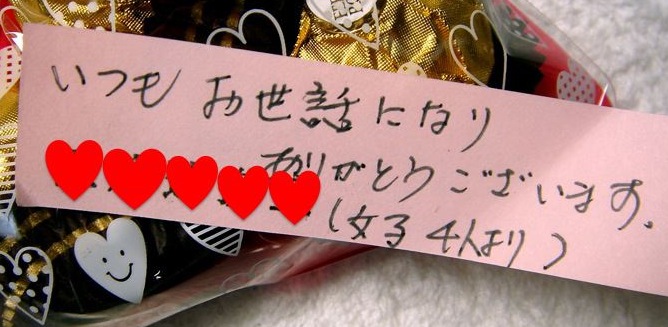 いつも お世話になり
ありがとうございます。
(女子4人より)